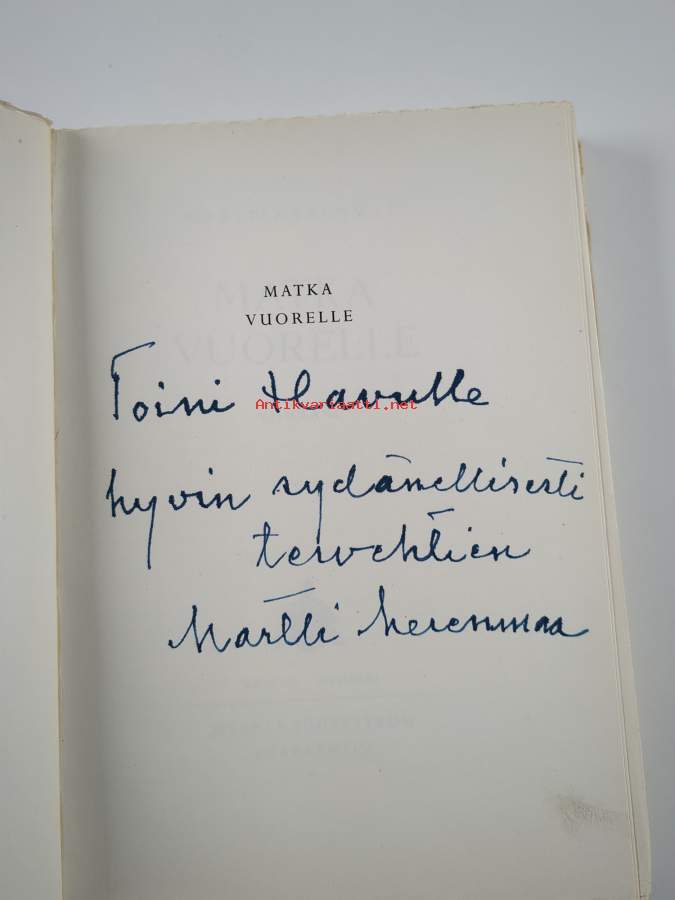 MATKA
VUORELLE
Toini Havulle
Antikvariaatti.net
hyvin sydämellisesti
tervehtien
Martti Merenmaa